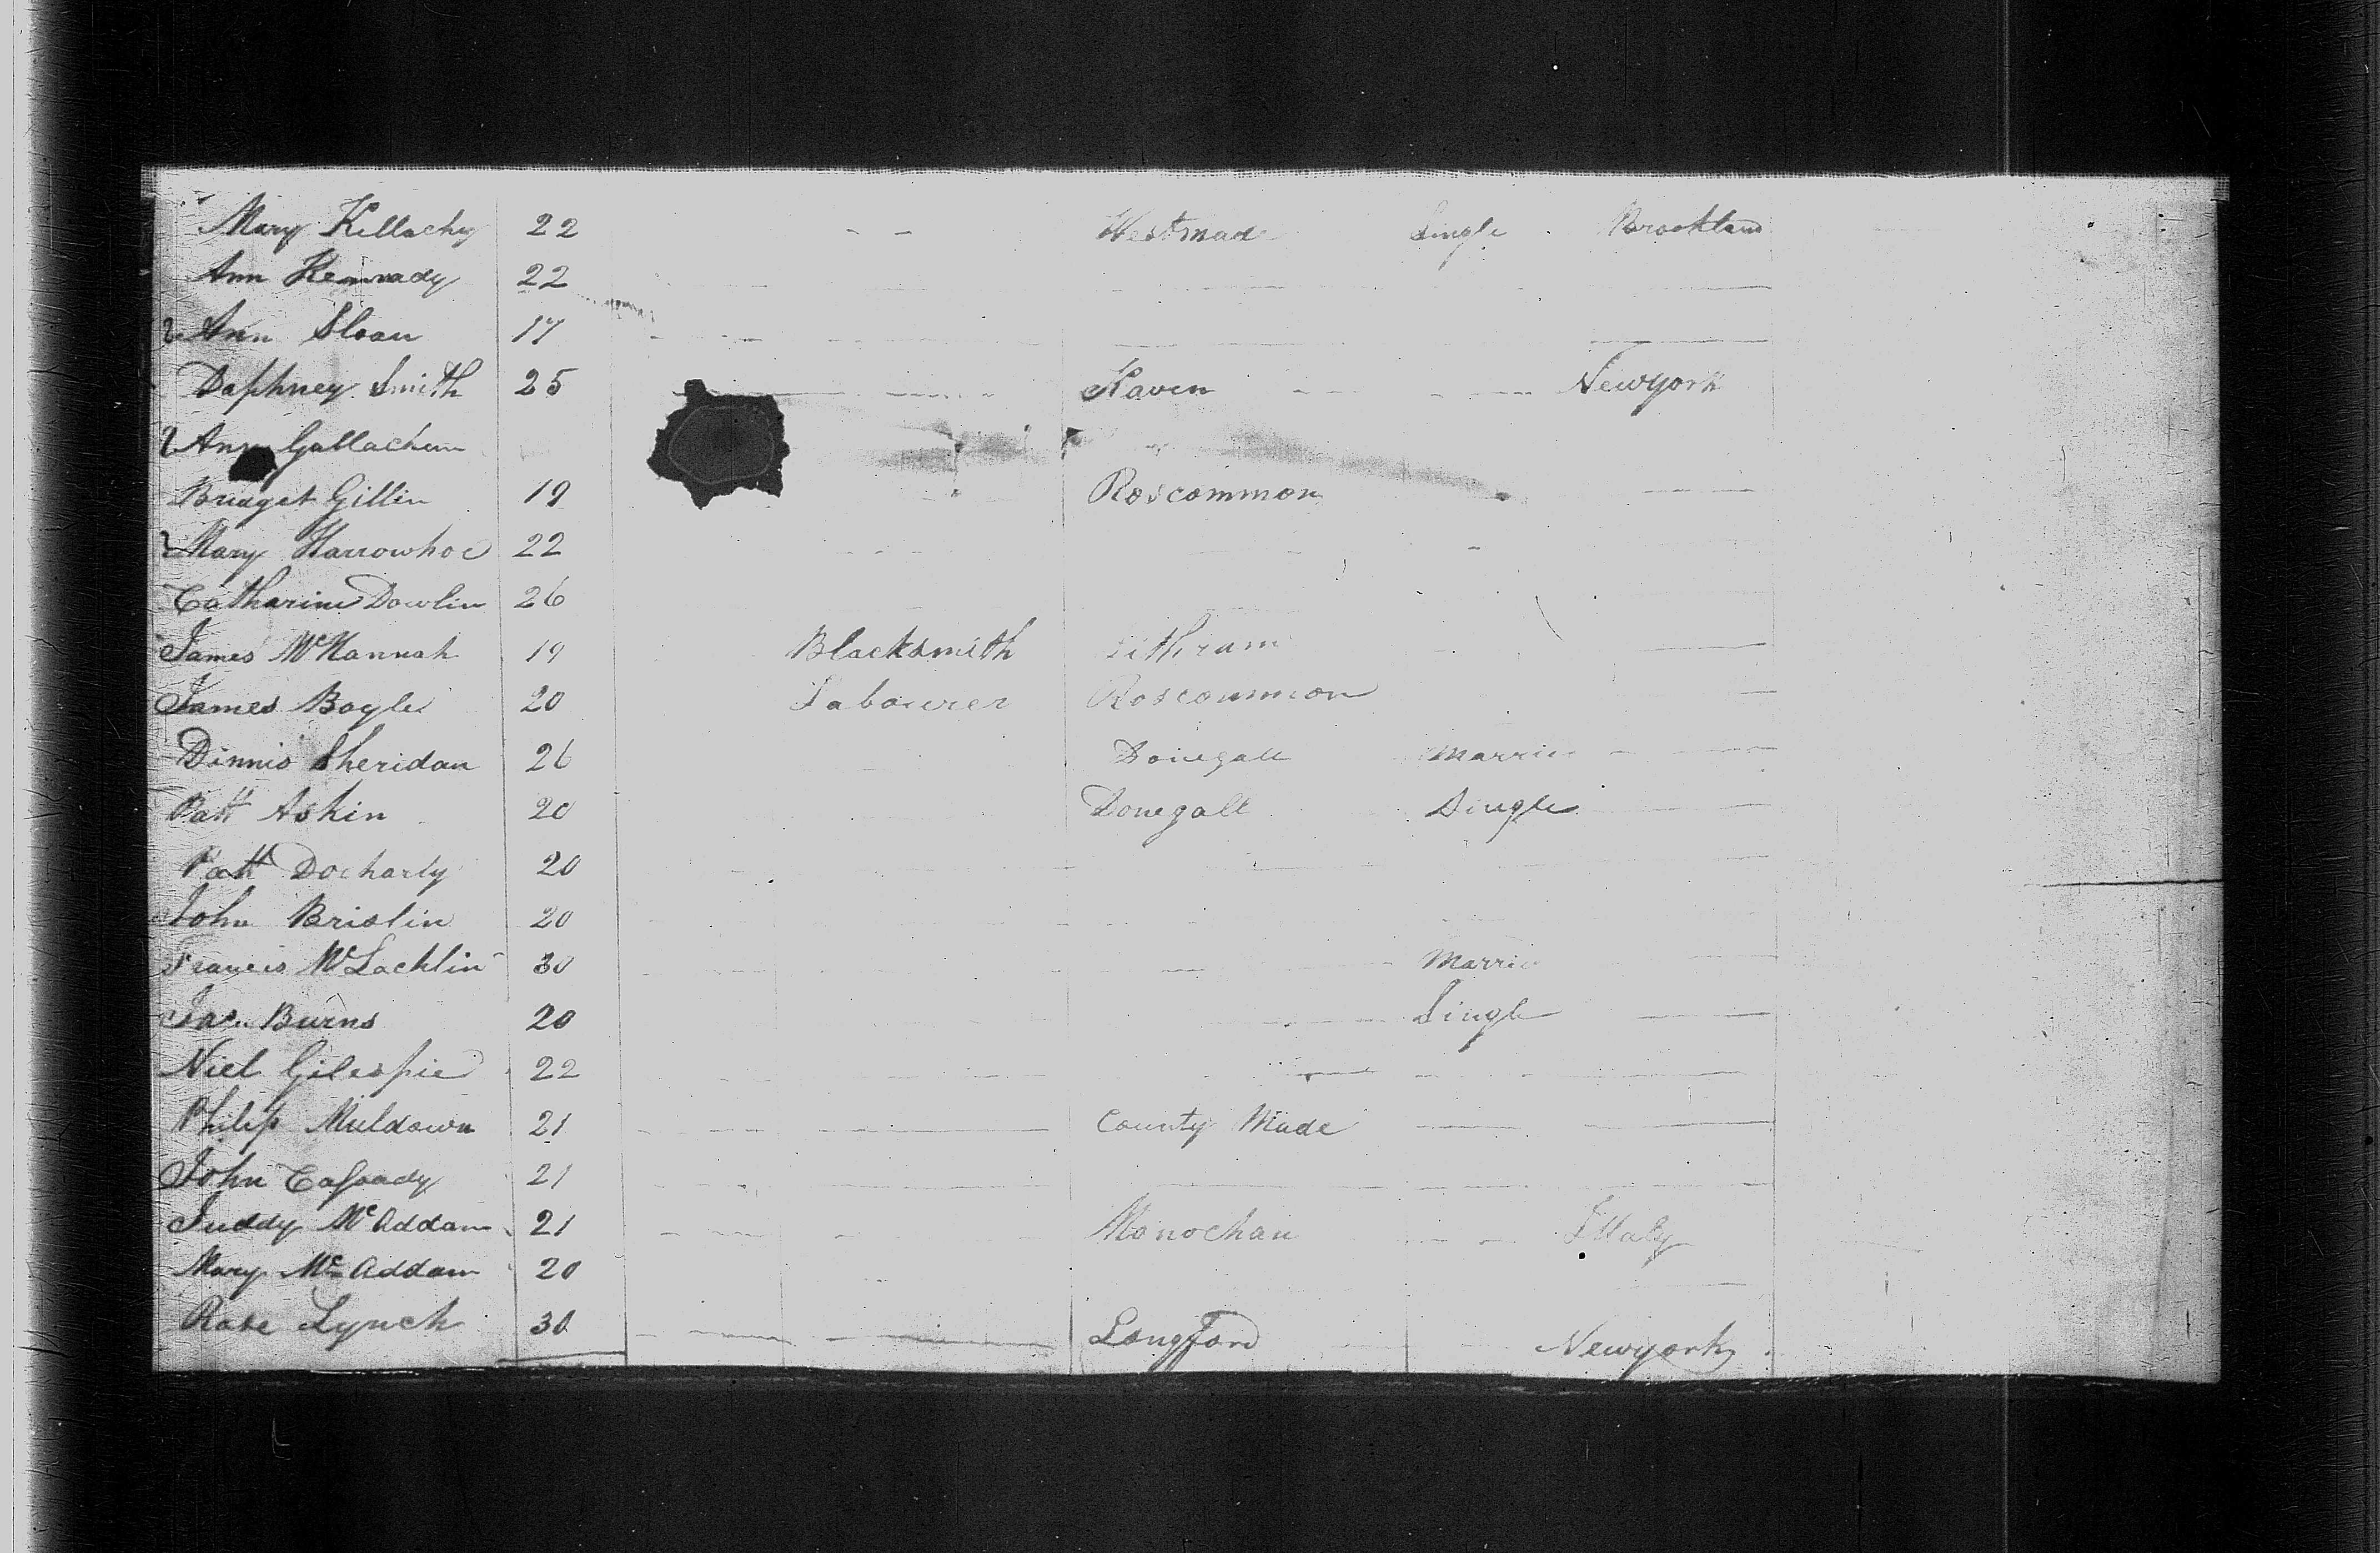 Mary Killachy 22 - - Westmade Single Brookland
Ann Kennady 22
Ann Sloan 17
Daphney Smith 25 Kaven Newyork
Ann Gallachem
Bridget Gillin 19 Roscommon
Mary Harrowhoe 22
Catharine Dowlin 26
James McHannah 19 Blacksmith Lithram
James Boyle 20 Labourer Roscommon
Dinnis Sheridan 26 Donegall Married
Patt Askin 20 Donegall Single
Patt Docharty 20
John Brislin 20
Francis McLachlin 30 Married
Jas. Burns 20 Single
Niel Gilespie 22
Philip Muldown 21 County Made
John Cassady 21
Juddy McAddam 21 Monochan
Mary McAddam 20
Rose Lynch 30 Longford Newyork